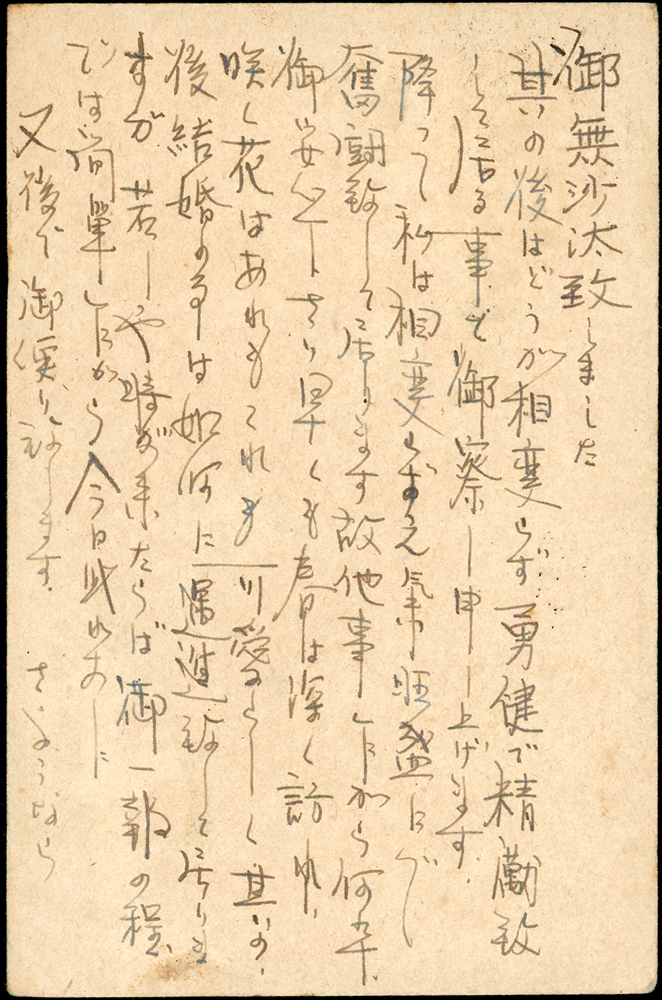 御無沙汰致しました
其の後はどうか相変らず勇健で精励致
して居る事と御察し申し上げます
降って私は相変らず元気旺盛に
奮闘致して居ります故他事しながら何卒
御安心下さり早くも春は深く訪れ
咲く花はあれもこれも可愛らしく其の
後結婚の事は如何に運進致して居りま
すが若しや時が来たらば御一報の程
では簡単しながら今日此れあしに
又後で御便り致します さようなら